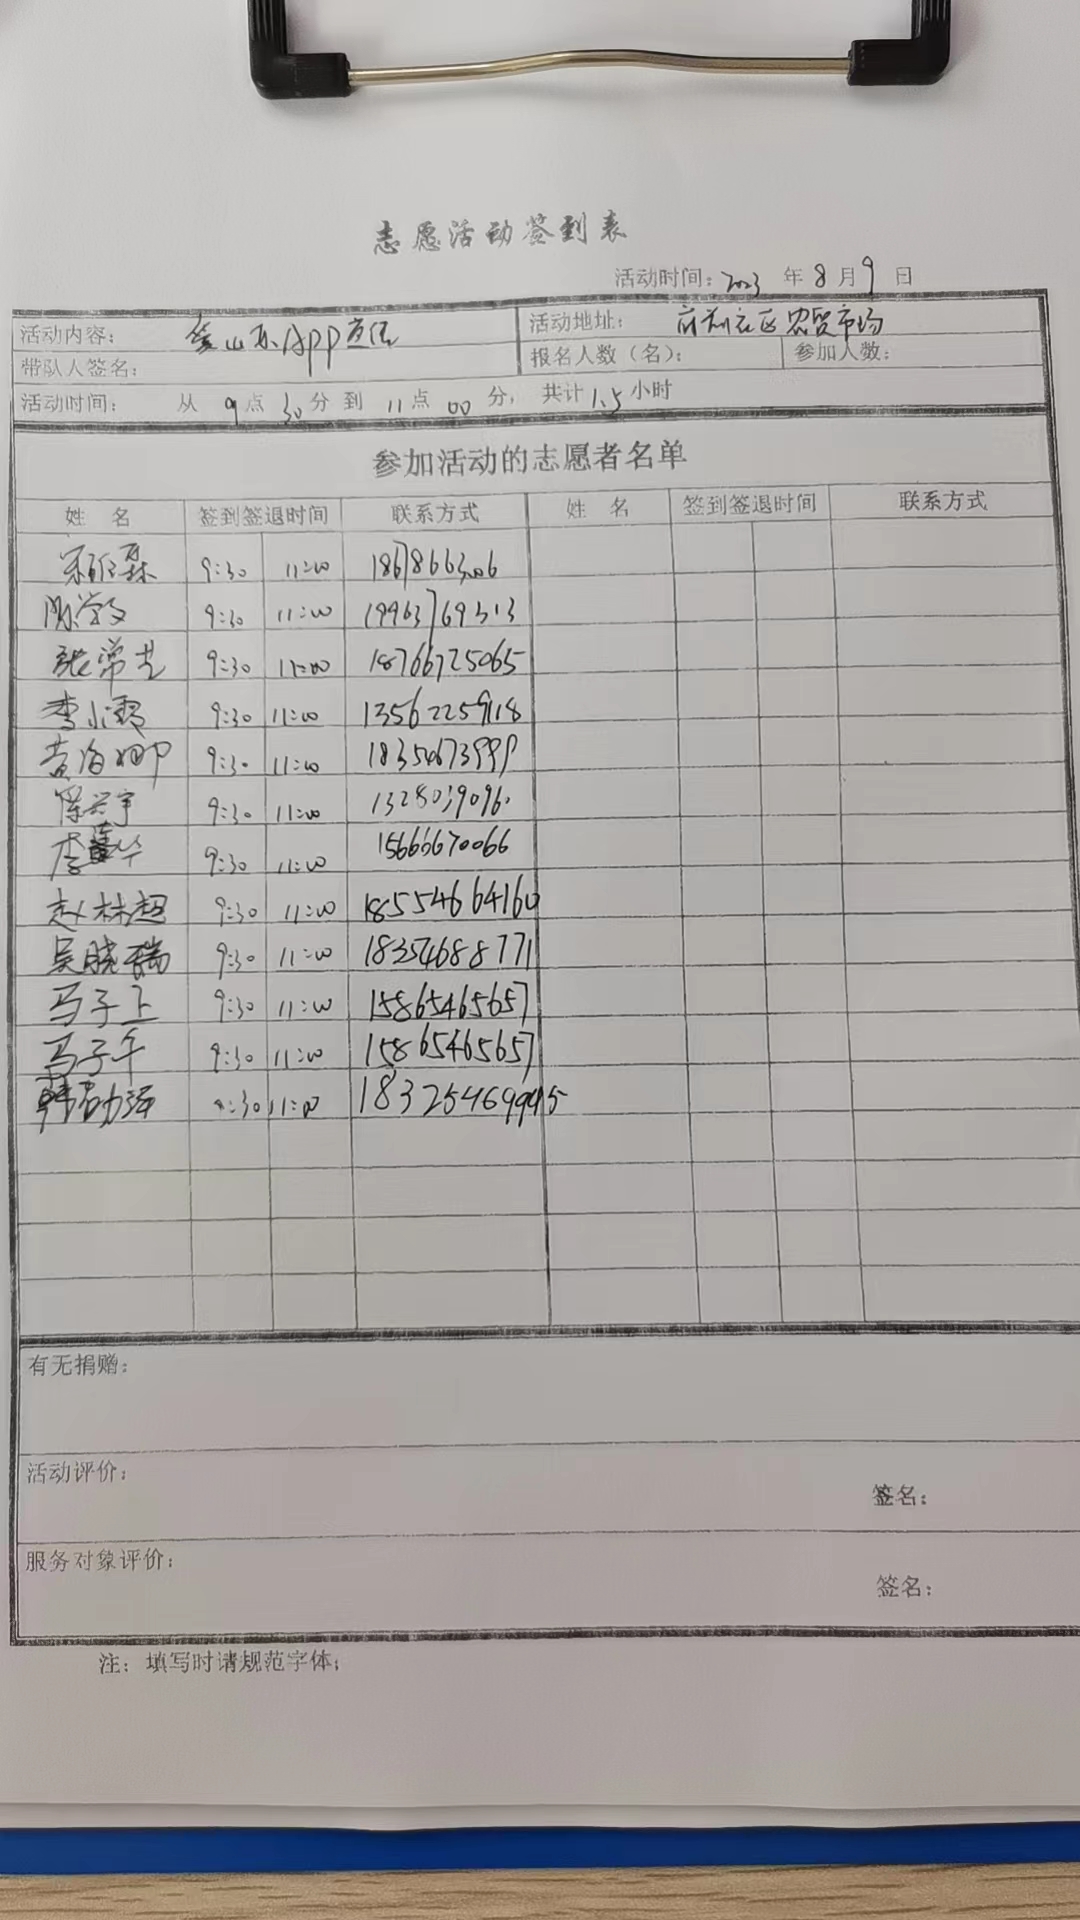 志愿活动签到表
活动时间：2023 年 8 月 9 日
活动内容： 爱山东App宣传 活动地址： 府前社区农贸市场
带队人签名： 报名人数（名）： 参加人数：
活动时间： 从 9 点 30 分 到 11 点 00 分， 共计 1.5 小时
参加活动的志愿者名单
姓 名 签到签退时间 联系方式 姓 名 签到签退时间 联系方式
9:30 11:00
9:30 11:00 19963769313
张常芝 9:30 11:00 18766725065
李小霞 9:30 11:00 13562259118
黄海娜 9:30 11:00
9:30 11:00
李 华 9:30 11:00 15666670066
赵林超 9:30 11:00 18554664160
吴晓瑞 9:30 11:00 18354688771
马子上 9:30 11:00 15865465657
马子午 9:30 11:00 15865465657
11:00
有无捐赠：
活动评价：
签名：
服务对象评价：
签名：
注：填写时请规范字体；